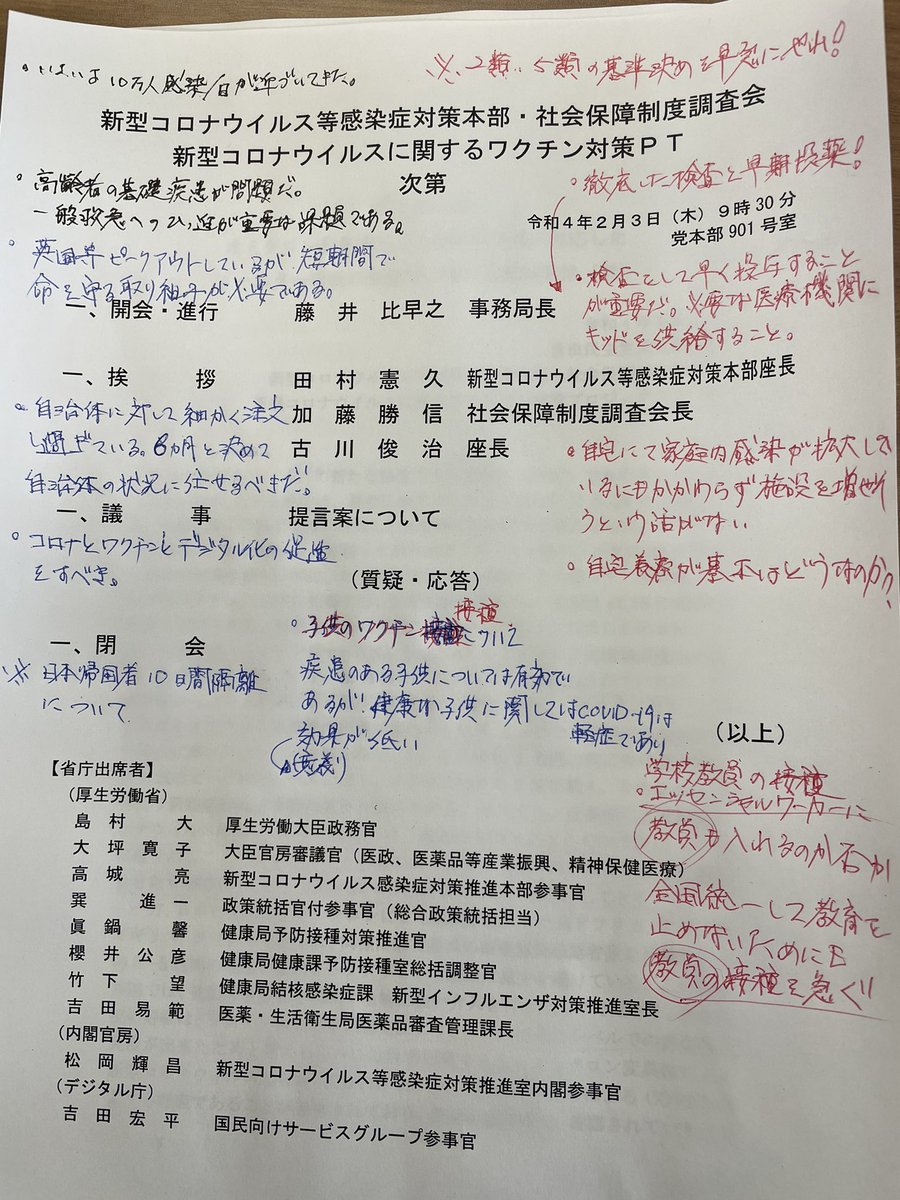 。いよいよ10万人感染/日が近づいてきた。
※、2類、5類の基準決めを早急にやれ!
新型コロナウイルス等感染症対策本部・社会保障制度調査会
新型コロナウイルスに関するワクチン対策PT
次第
令和4年2月3日(木)9時30分
党本部901号室
。高齢者の基礎疾患が問題だ。
一般救急へのひっ迫が重要な課題である。
。英国等ピークアウトしているが短期間で
命を守る取り組みが必要である。
。徹底した検査と早期投薬!
。検査をして早く投与すること
が重要だ。必要な医療機関に
キッドを供給すること。
一、開会・進行 藤井 比早之 事務局長
一、挨 拶 田村憲久 新型コロナウイルス等感染症対策本部座長
加藤勝信 社会保障制度調査会長
古川俊治 座長
。自治体に対して細かく注文
し過ぎている。6ヵ月と決めて
自治体の状況に任せるべきだ。
。自宅にて家庭内感染が拡大して
いるにもかかわらず施設を増やそ
うという話がない
。自宅養療が基本はどうなのか?
一、議 事 提言案について
。コロナとワクチンとデジタル化の促進
をすべき。
(質疑・応答)
。子供のワクチン接種について
疾患のある子供については有効で
あるが!健康な子供に関してはCOVID-19は
軽症であり
効果が低い
一、閉 会
※日本帰国者10日間隔離
について
(以上)
学校教員の接種
。エッセンシャルワーカーに
教員も入れるのか否か
全国統一して教育を
止めないためにも
教員の接種を急ぐ!!
【省庁出席者】
(厚生労働省)
島村 大 厚生労働大臣政務官
大坪寛子 大臣官房審議官(医政、医薬品等産業振興、精神保健医療)
高城 亮 新型コロナウイルス感染症対策推進本部参事官
巽 進一 政策統括官付参事官(総合政策統括担当)
眞鍋 馨 健康局予防接種対策推進官
櫻井公彦 健康局健康課予防接種室総括調整官
竹下 望 健康局結核感染症課 新型インフルエンザ対策推進室長
吉田易範 医薬・生活衛生局医薬品審査管理課長
(内閣官房)
松岡輝昌 新型コロナウイルス等感染症対策推進室内閣参事官
(デジタル庁)
吉田宏平 国民向けサービスグループ参事官